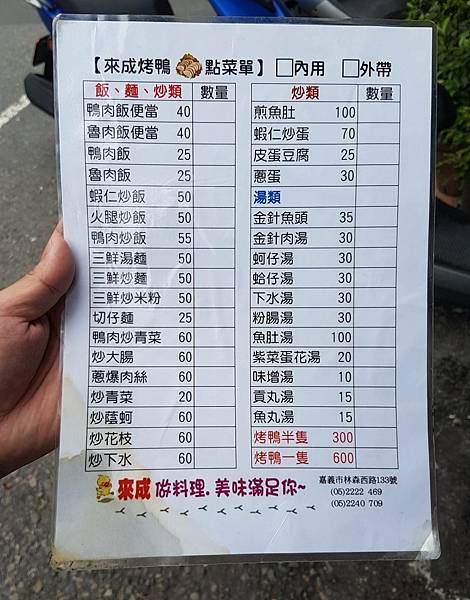 【來成烤鴨 點菜單】 □內用 □外帶
飯、麵、炒類 數量
鴨肉飯便當 40
魯肉飯便當 40
鴨肉飯 25
魯肉飯 25
蝦仁炒飯 50
火腿炒飯 50
鴨肉炒飯 55
三鮮湯麵 50
三鮮炒麵 50
三鮮炒米粉 50
切仔麵 25
鴨肉炒青菜 60
炒大腸 60
蔥爆肉絲 60
炒青菜 20
炒蔭蚵 60
炒花枝 60
炒下水 60
炒類 數量
煎魚肚 100
蝦仁炒蛋 70
皮蛋豆腐 25
蔥蛋 30
湯類
金針魚頭 35
金針肉湯 30
蚵仔湯 30
蛤仔湯 30
下水湯 30
粉腸湯 30
魚肚湯 100
紫菜蛋花湯 20
味增湯 10
貢丸湯 15
魚丸湯 15
烤鴨半隻 300
烤鴨一隻 600
來成 做料理.美味滿足你~
嘉義市林森西路133號
(05)2222 469
(05)2240 709